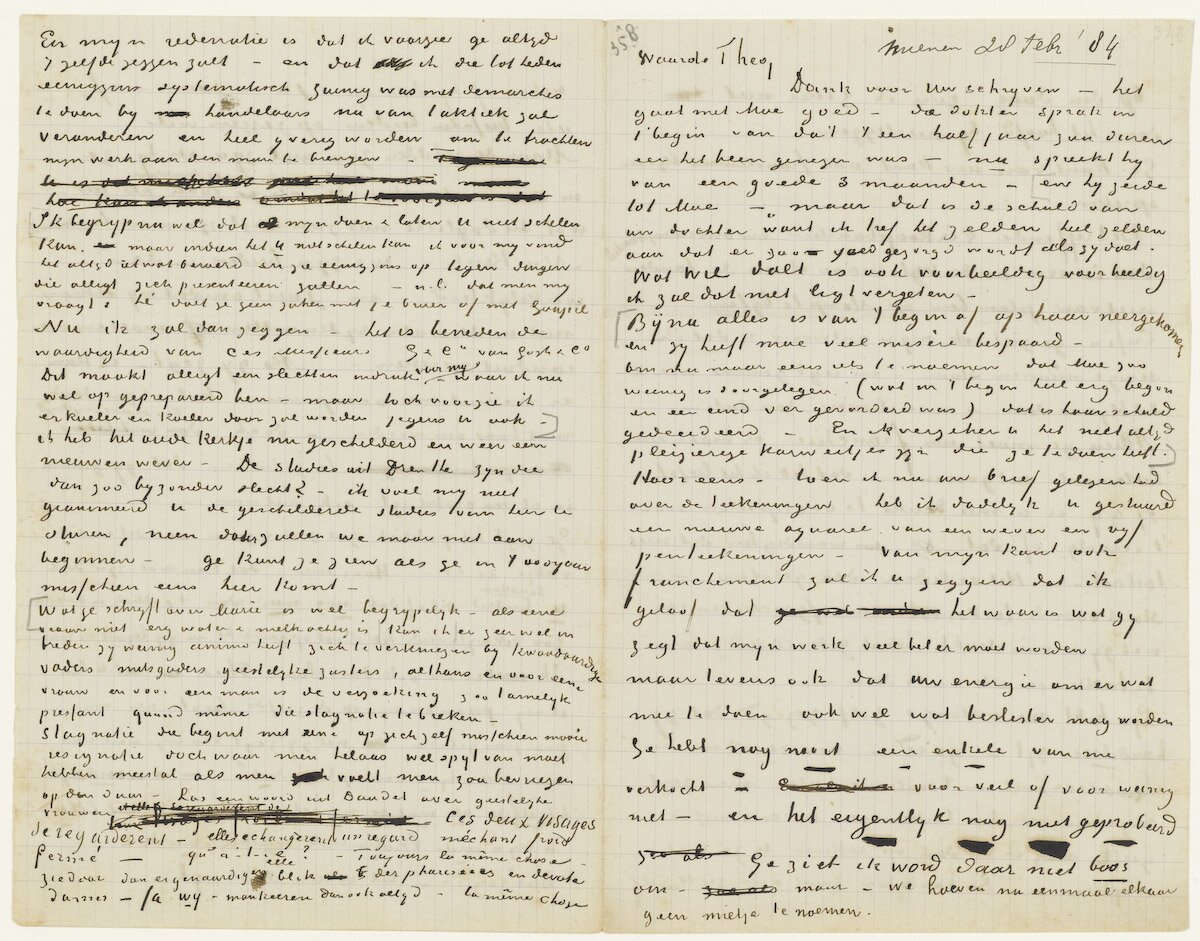 En mijn redenatie is dat ik voorzie ge altyd
't zelfde zeggen zult – en dat ik die tot heden
eenigzins systematisch zuinig was met demarches
te doen by handelaars nu van taktiek zal
veranderen en heel yverig worden om te trachten
mijn werk aan den man te brengen –
Ik begryp nu wel dat mijn doen & laten U niet schelen
kan. maar indien het U niet schelen kan ik voor my vind
het altyd iets wat beroerd en zie eenigzins op tegen dingen
die alligt zich presenteeren zullen – n.l. dat men my
vraagt: hé doet ge geen zaken met je broer of met Goupil
Nu ik zal dan zeggen – het is beneden de
waardigheid van ces Messieurs G & Cie van Gogh & Co
Dit maakt alligt een slechten indruk voor my – waar ik nu
wel op geprepareerd ben – maar toch voorzie ik
er koeler en koeler door zal worden jegens U ook –
ik heb het oude kerkje nu geschilderd en weer een
nieuwen wever – De studies uit Drenthe zyn die
dan zoo byzonder slecht? – ik voel my niet
geanimeerd U de geschilderde studies van hier te
sturen, neen daar zullen we maar niet aan
beginnen – ge kunt ze zien als ge in 't voorjaar
misschien eens hier komt –
Wat ge schryft over Marie is wel begrypelyk – als eene
vrouw niet erg water & melkachtig is kan ik er zeer wel in
treden zy weinig animo heeft zich te verkniezen by kwaadaardige
vaders mitsgaders geestelyke zusters, althans en voor eene
vrouw en voor een man is de verzoeking zoo tamelyk
pressant quand même die stagnatie te breken –
Stagnatie die begint met eene op zich zelf misschien mooie
resignatie doch waar men helaas wel spyt van moet
hebben meestal als men voelt men zou bevriezen
op den duur – Las een woord uit Daudet over geestelyke
vrouwen – Ces deux visages
se regarderent – elles echangerent un regard méchant froid
fermé – qu'a-t-il/elle? – Toujours la même chose –
ziedaar dan eigenaardigen blik der phariseëes en devote
dames – Ja wy – mankeeren dan ook altyd – la même chose
Nuenen 20 Febr '84
358
Waarde Theo,
Dank voor Uw schryven – het
gaat met Moe goed – de dokter sprak in
't begin van dat 't een half jaar zou duren
eer het been genezen was – nu spreekt hy
van een goede 3 maanden – en hy zeide
tot Moe – „maar dat is de schuld van
uw dochter want ik tref het zelden heel zelden
aan dat er zoo goed gezorgd wordt als zy doet.
Wat Wil doet is ook voorbeeldig voorbeeldig
ik zal dat niet ligt vergeten –
Bijna alles is van 't begin af op haar neergekomen
en zy heeft moe veel misère bespaard –
om nu maar eens iets te noemen dat Moe zoo
weinig is doorgelegen (wat in 't begin heel erg begon
en een eind ver gevorderd was) dat is haar schuld
gedecideerd – En ik verzeker U het niet altyd
pleizierige karweitjes zyn die ze te doen heeft.
Hoor eens – toen ik nu uw brief gelezen had
over de teekeningen heb ik dadelyk U gestuurd
een nieuwe aquarel van een wever en vyf
penteekeningen – Van mijn kant ook
franchement zal ik U zeggen dat ik
geloof dat het waar is wat gy
zegt dat mijn werk veel beter moet worden
maar tevens ook dat uw energie om er wat
mee te doen ook wel wat beslister mag worden
Ge hebt nog nooit een enkele van me
verkocht – voor veel of voor weinig
niet – en het eigentlyk nog niet geprobeerd
Ge ziet ik word daar niet boos
om – maar – we hoeven nu eenmaal elkaar
geen mietje te noemen.